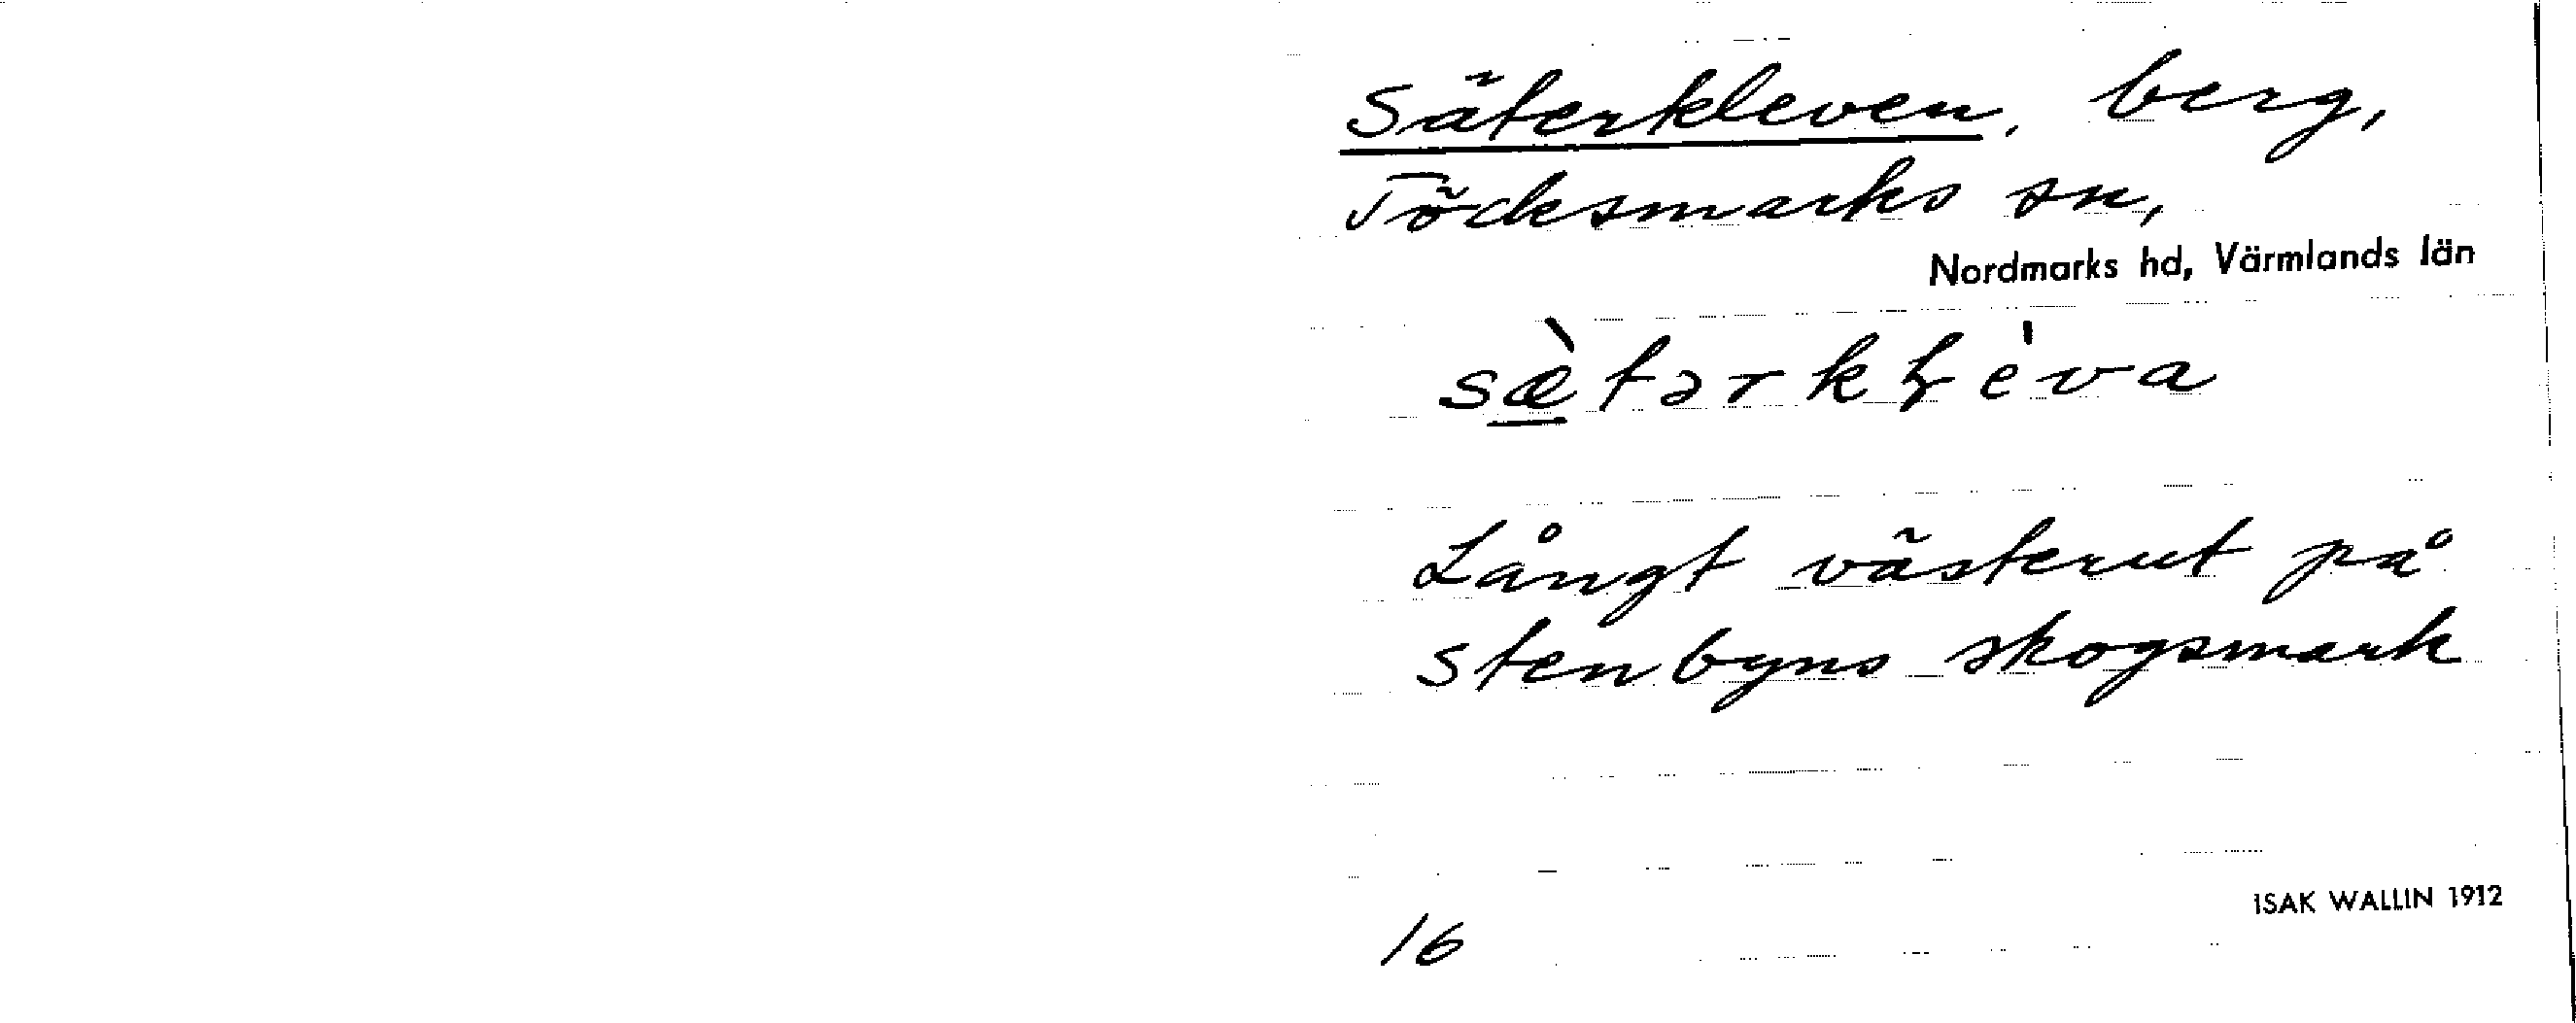 Säterkleven, berg,
Töcksmarks sn,
Nordmarks hd, Värmlands län
sæ̱̀tərkɽèva
Långt västerut på
Stenbyns skogsmark
ISAK WALLIN 1912
16